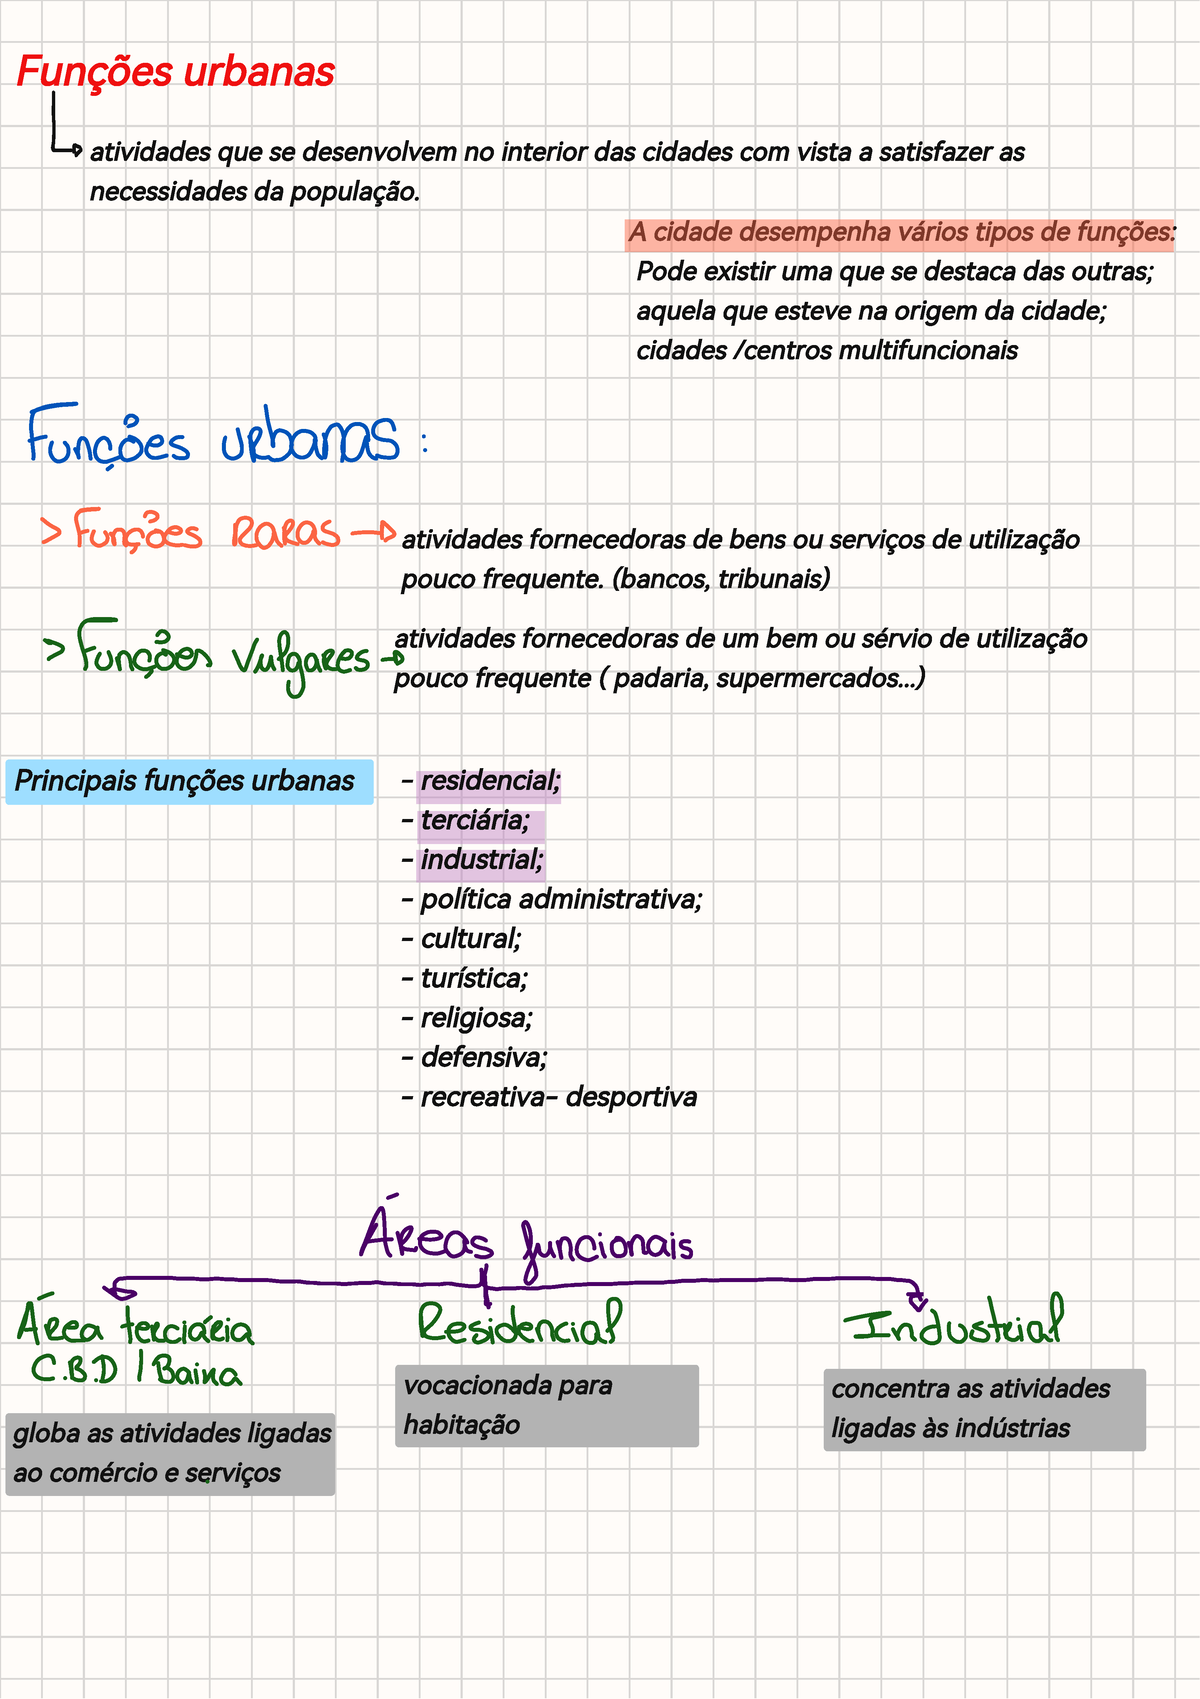 Funções urbanas
atividades que se desenvolvem no interior das cidades com vista a satisfazer as
necessidades da população.
A cidade desempenha vários tipos de funções:
Pode existir uma que se destaca das outras;
aquela que esteve na origem da cidade;
cidades /centros multifuncionais
Funções urbanas :
> Funções RaRas → atividades fornecedoras de bens ou serviços de utilização
pouco frequente. (bancos, tribunais)
> Funções Vulgares → atividades fornecedoras de um bem ou sérvio de utilização
pouco frequente ( padaria, supermercados...)
Principais funções urbanas
- residencial;
- terciária;
- industrial;
- política administrativa;
- cultural;
- turística;
- religiosa;
- defensiva;
- recreativa- desportiva
Áreas funcionais
Área terciária
C.B.D / Baixa
globa as atividades ligadas
ao comércio e serviços
Residencial
vocacionada para
habitação
Industrial
concentra as atividades
ligadas às indústrias